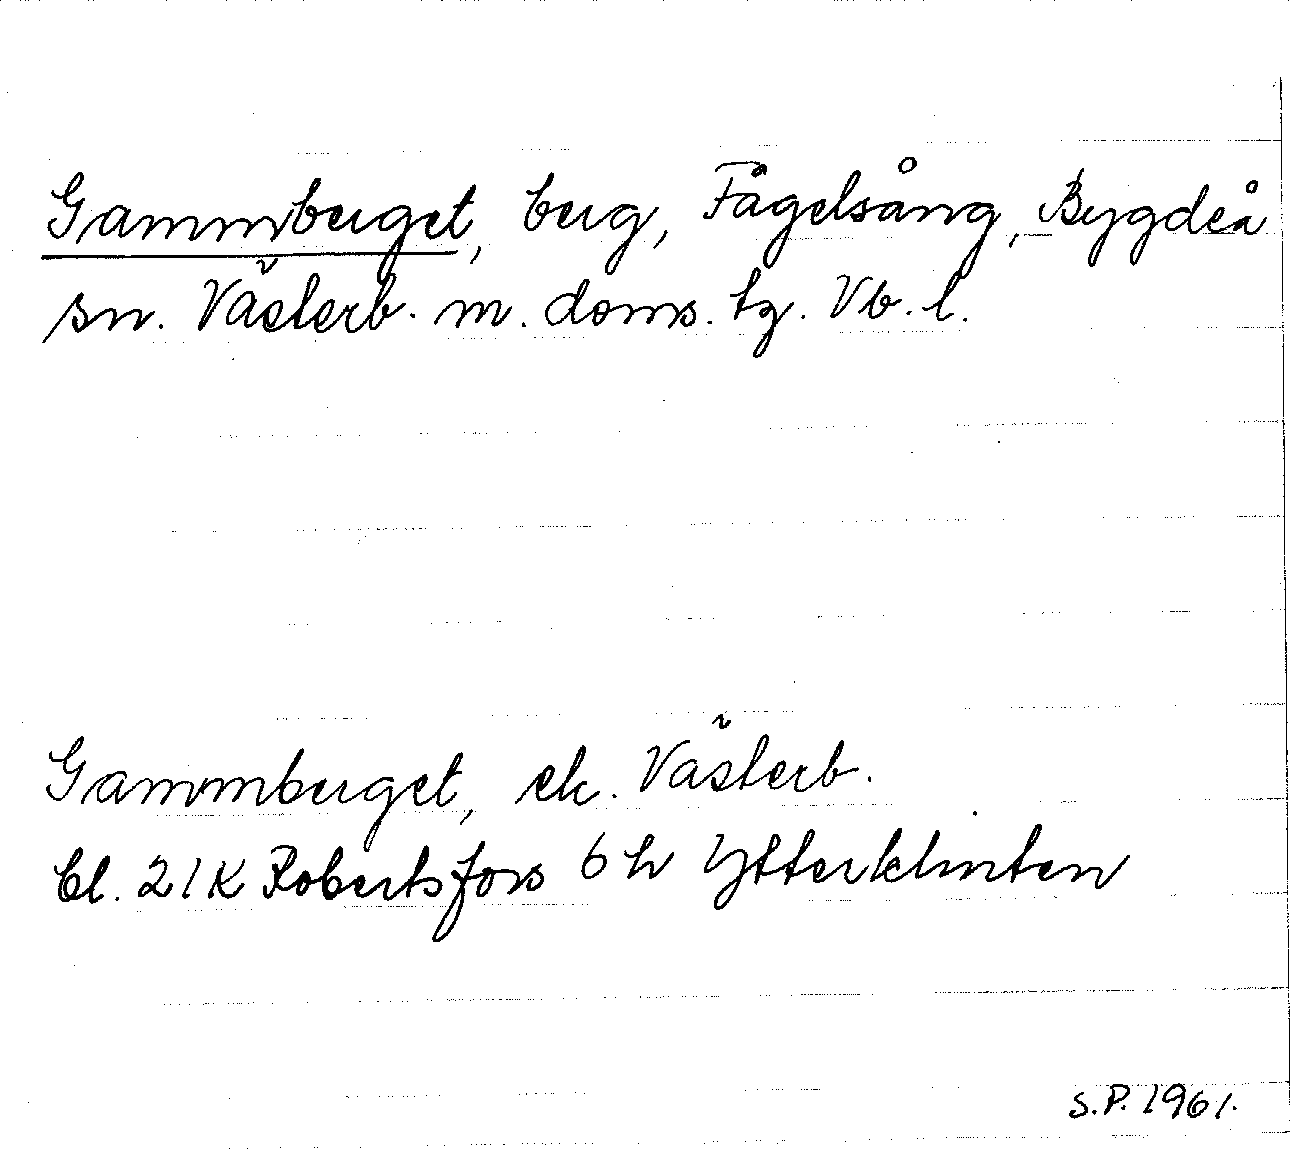 Gammberget, berg, Fågelsång, Bygdeå
sn. Västerb. m. doms. tg. Vb. l.
Gammberget, ek. Västerb.
bl. 21K Robertsfors 6 h Ytterklinten
S.P. 1961.